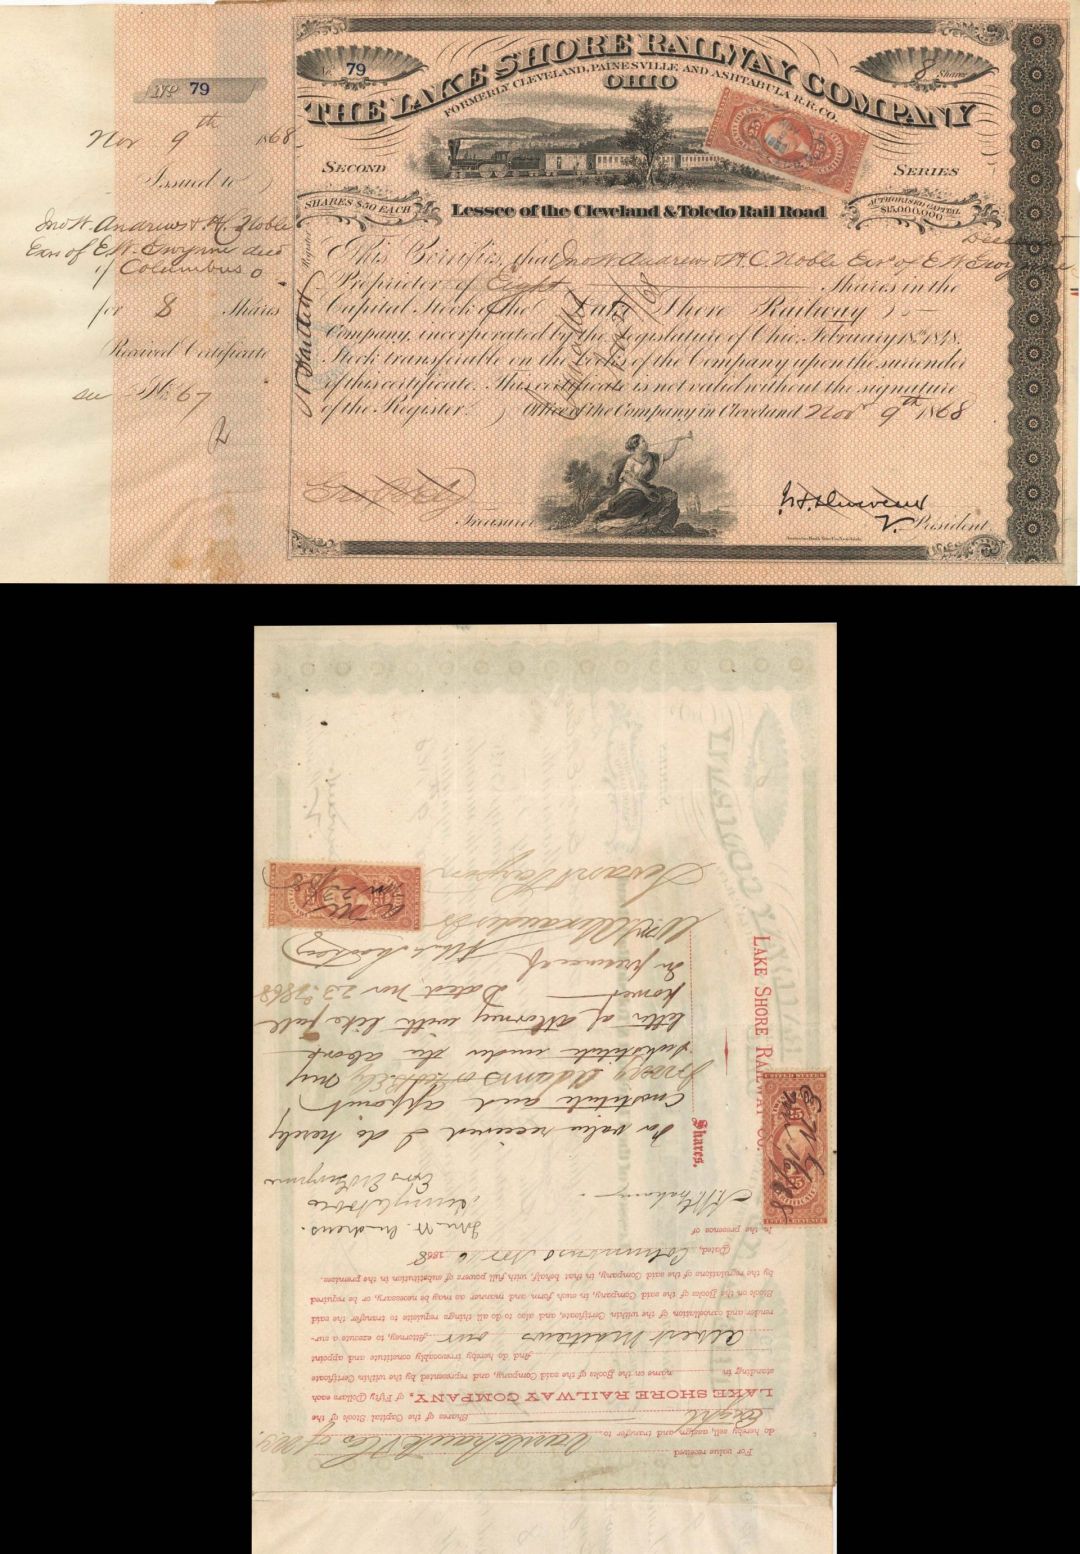 No 79
8 Shares
THE LAKE SHORE RAILWAY COMPANY
FORMERLY CLEVELAND, PAINESVILLE AND ASHTABULA R.R.CO.
OHIO
SECOND
SERIES
SHARES $50 EACH
AUTHORISED CAPITAL
$15,000,000
Lessee of the Cleveland & Toledo Rail Road
No 79
Nov 9th 1868
Issued to
Jno W. Andrews & H.C. Noble
Exrs of E.W. Gwynne decd
of Columbus O
for 8 Shares
Received Certificate
67
Register
Deceased
This Certifies, that Jno W. Andrews & H.C. Noble Exrs of E W Gwynne
Proprietor of Eight Shares in the
Capital Stock of the Lake Shore Railway
Company, incorporated by the Legislature of Ohio, February 18th 1848.
Stock transferable on the books of the Company upon the surrender
of this certificate. This certificate is not valid without the signature
of the Register. Office of the Company in Cleveland Nov 9th 1868
Treasurer
V. President
For value received
do hereby sell, assign and transfer to
Eight Shares of the Capital Stock of the
LAKE SHORE RAILWAY COMPANY, of Fifty Dollars each
standing in name on the Books of the said Company, and represented by the within Certificate
And do hereby irrevocably constitute and appoint
Albert Mathews our Attorney, to execute a sur-
render and cancellation of the within Certificate, and also to do all things requisite to transfer the said
Stock on the Books of the said Company, in such form and manner as may be necessary, or be required
by the regulations of the said Company, in that behalf, with full powers of substitution in the premises.
Dated, Columbus Nov 16 1868
In the presence of
Jno. W. Andrews.
Henry C. Noble
Exrs E W Gwynne
For value received I do hereby
constitute and appoint
my
substitute under the above
letter of attorney with like full
power Dated Nov 23 1868
In presence of
LAKE SHORE RAILWAY CO.
Shares.